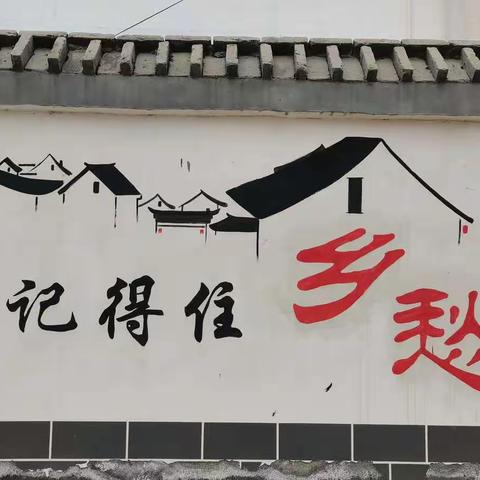 记得住乡愁